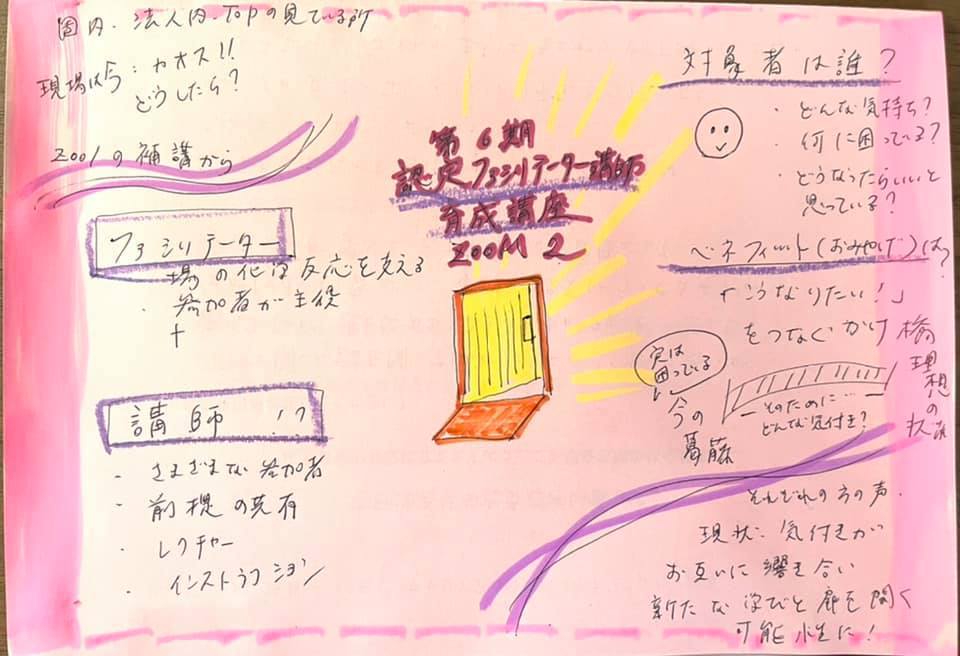 園内・法人内・Topの見ている所
現場は今:カオス!!
どうしたら?
ZOO1の補講から
ファシリテーター
場の化学反応を支える
・参加者が主役
講師 !?
・さまざまな参加者
・前提の共有
・レクチャー
・インストラクション
第6期
認定ファシリテーター講師
育成講座
ZOOM 2
対象者は誰?
・どんな気持ち?
・何に困っている?
・どうなったらいいと
思っている?
ベネフィット(おみやげ)は?
「こうなりたい!」
をつなぐかけ橋
実は
困っている
今の
葛藤
そのために…
どんな気付き?
理想の
状態
それぞれの方の声、
現状、気付きが
お互いに響き合い
新たな学びと扉を開く
可能性に!